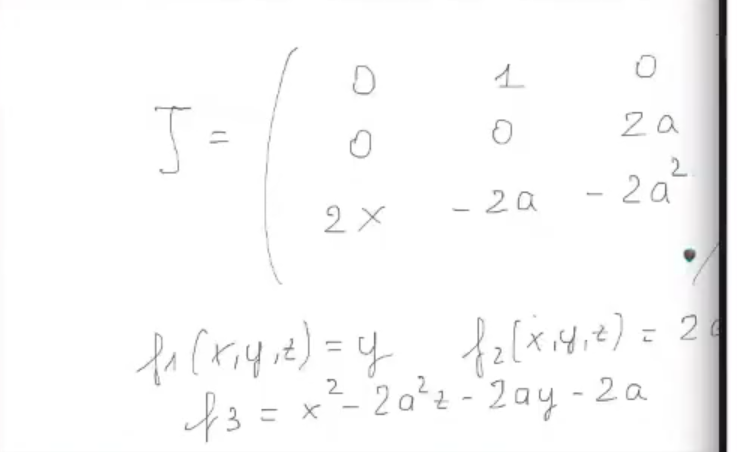 J = ( 0 1 0
0 0 2a
2x -2a -2a²
f₁(x,y,z) = y f₂(x,y,z) = 2
f₃ = x² - 2a²z - 2ay - 2a